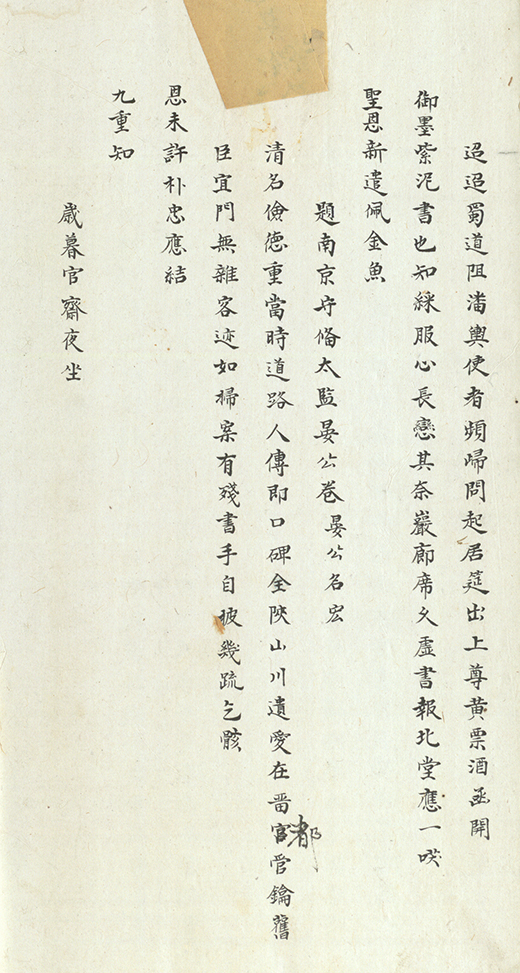 迢迢蜀道阻潘輿使者頻歸問起居筵出上尊黄票酒函開
御墨紫泥書也知綵服心長戀其奈巖廊席久虚書報北堂應一咲
聖恩新遣佩金魚
題南京守備太監晏公卷晏公名宏
清名儉德重當時道路人傳即口碑全陝山川遺愛在畱宫管鑰舊
都
臣宜門無雜客迹如掃案有殘書手自披幾疏乞骸
恩未許朴忠應結
九重知
歲暮官齋夜坐